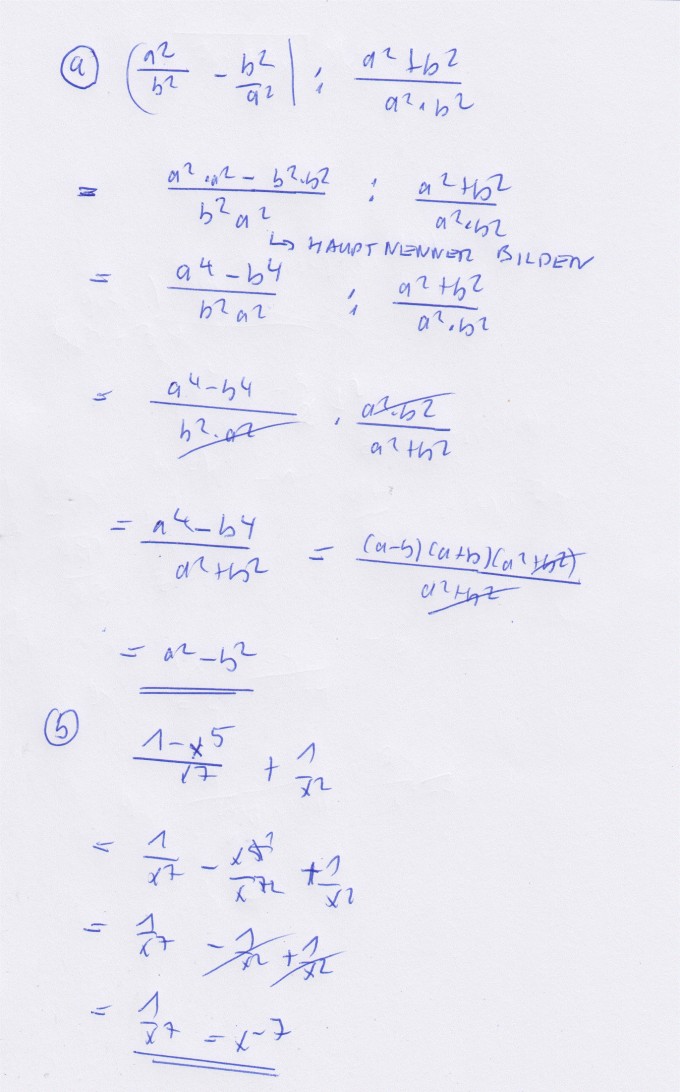 a) (a²/b² - b²/a²) : (a²+b²)/(a²·b²)
= (a²·a² - b²·b²)/(b²a²) : (a²+b²)/(a²·b²)
↳ HAUPTNENNER BILDEN
= (a⁴-b⁴)/(b²a²) : (a²+b²)/(a²·b²)
= (a⁴-b⁴)/(b²·a²) · (a²·b²)/(a²+b²)
= (a⁴-b⁴)/(a²+b²) = (a-b)(a+b)(a²+b²)/(a²+b²)
= a²-b²
b)
(1-x⁵)/x⁷ + 1/x²
= 1/x⁷ - x⁵/x⁷ + 1/x²
= 1/x⁷ - 1/x² + 1/x²
= 1/x⁷ = x⁻⁷